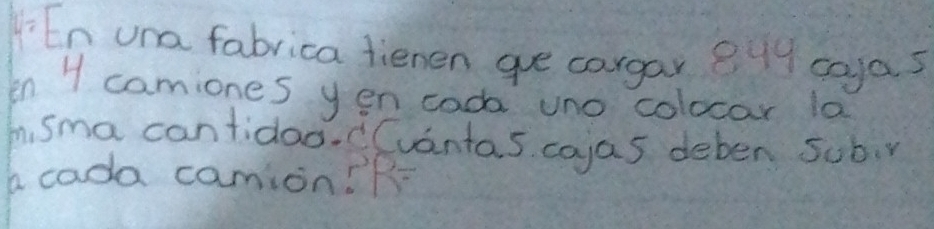 4-En una fabrica tienen que cargar 844 cajas
en 4 camiones y en cada uno colocar la
misma cantidad. ¿Cuántas cajas deben subir
a cada camión? R=